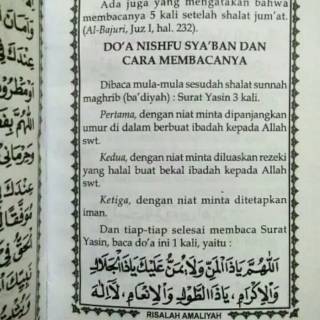 Ada juga yang mengatakan bahwa
membacanya 5 kali setelah shalat jum'at.
(Al-Bajuri, Juz I, hal. 232).
DO'A NISHFU SYA'BAN DAN
CARA MEMBACANYA
Dibaca mula-mula sesudah shalat sunnah
maghrib (ba'diyah) : Surat Yasin 3 kali.
Pertama, dengan niat minta dipanjangkan
umur di dalam berbuat ibadah kepada Allah
swt.
Kedua, dengan niat minta diluaskan rezeki
yang halal buat bekal ibadah kepada Allah
swt.
Ketiga, dengan niat minta ditetapkan
iman.
Dan tiap-tiap selesai membaca Surat
Yasin, baca do'a ini 1 kali, yaitu :
اَللّٰهُمَّ يَاذَا الْمَنِّ وَلَا يُمَنُّ عَلَيْكَ يَاذَا الْجَلَالِ
وَالْاِكْرَامِ، يَاذَا الطَّوْلِ وَالْاِنْعَامِ، لَا اِلٰهَ
RISALAH AMALIYAH